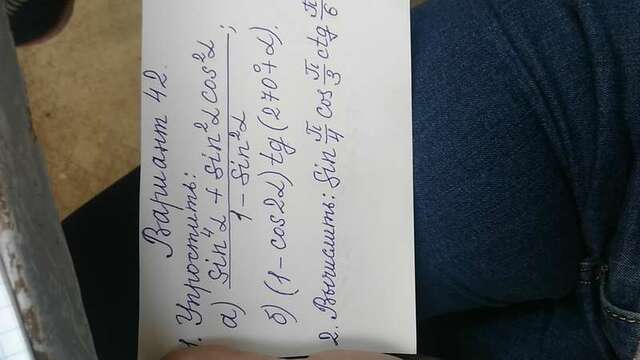 Вариант 42.
1. Упростить:
а) (sin⁴α + sin²α cos²α) / (1 − sin²α);
б) (1 − cos2α) tg (270° + α).
2. Вычислить: sin π/4 cos π/3 ctg π/6